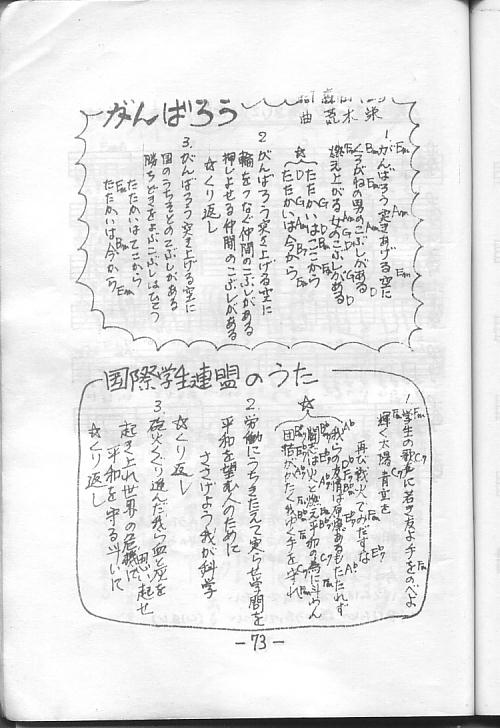 がんばろう
詞 森田
曲 荒木 栄
1. がんばろう 突きあげる空に
Em Am Em
くろがねの男のこぶしがある
Em Bm Am D
燃え上がる女のこぶしがある
Em Am G D
☆ たたかいはここから
D G Bm
たたかいは今から
Am B7 Em
2. がんばろう 突き上げる空に
輪をつなぐ仲間のこぶしがある
押しよせる仲間のこぶしがある
☆くり返し
3. がんばろう 突き上げる空に
国のうちそとのこぶしがある
勝ちどきをよぶこぶしはひとつ
たたかいはここから
たたかいは今から
Em Bm Em
国際学生連盟のうた
1. 学生の歌声に若き友よ手をのべよ
Fm C7 Fm
輝く太陽 青空を
C7 Fm
再び戦火でみだすな
Eb7
☆ 我らの友情は原爆あるもたたれず
闘志は火と燃え平和の為に斗わん
団結かたく我が行く手を守れ
2. 労働にうちきたえて実らせ学問を
平和を望む人のために
ささげよう我が科学
☆くり返し
3. 砲火くぐり進んだ我ら血と死を
思い起せ
起き上れ世界の危機に
平和を守る斗いに
☆くり返し
- 73 -